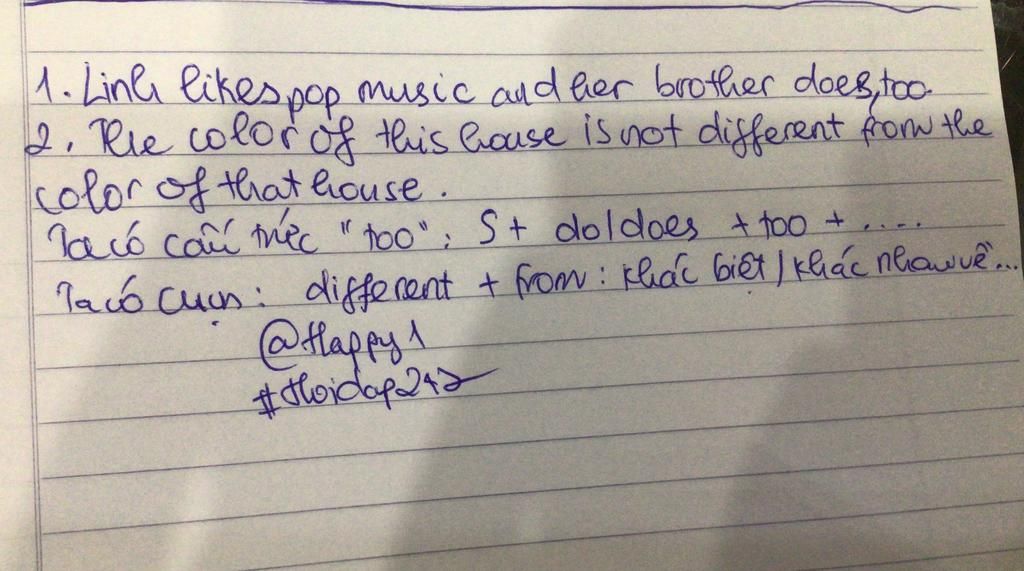 1. Linh likes pop music and her brother does, too.
2. The color of this house is not different from the
color of that house.
Ta có cấu trúc "too": S + do/does + too + .....
Ta có cụm: different + from: khác biệt / khác nhau về...
@Happy1
#Hoidap247